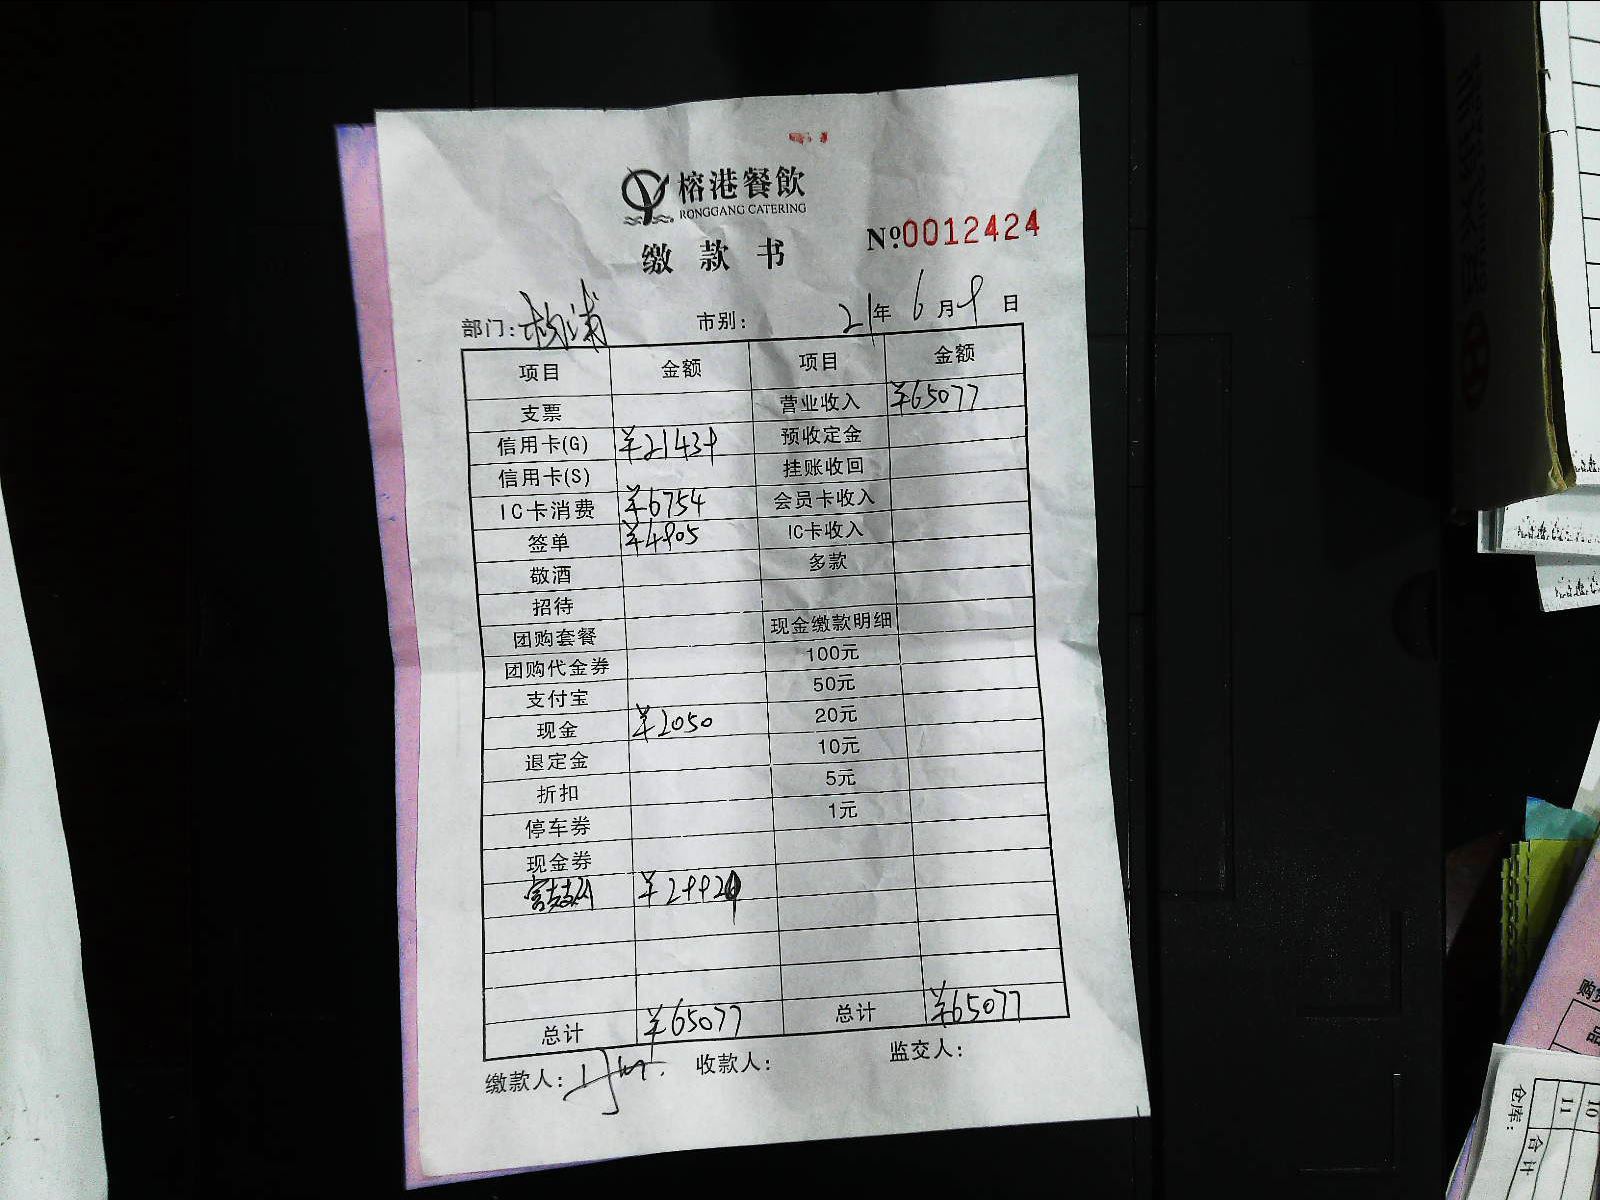 榕港餐飲
RONGGANG CATERING
缴款书
№:0012424
部门:杨浦 市别: 21年6月9日
项目 金额 项目 金额
支票 营业收入 ¥65077
信用卡(G) ¥21439 预收定金
信用卡(S) 挂账收回
IC卡消费 ¥6754 会员卡收入
签单 ¥4905 IC卡收入
敬酒 多款
招待
团购套餐 现金缴款明细
团购代金券 100元
支付宝 50元
现金 ¥2050 20元
退定金 10元
折扣 5元
停车券 1元
现金券
¥29929
总计 ¥65077 总计 ¥65077
缴款人: 收款人: 监交人:
仓库:
10
11
合计